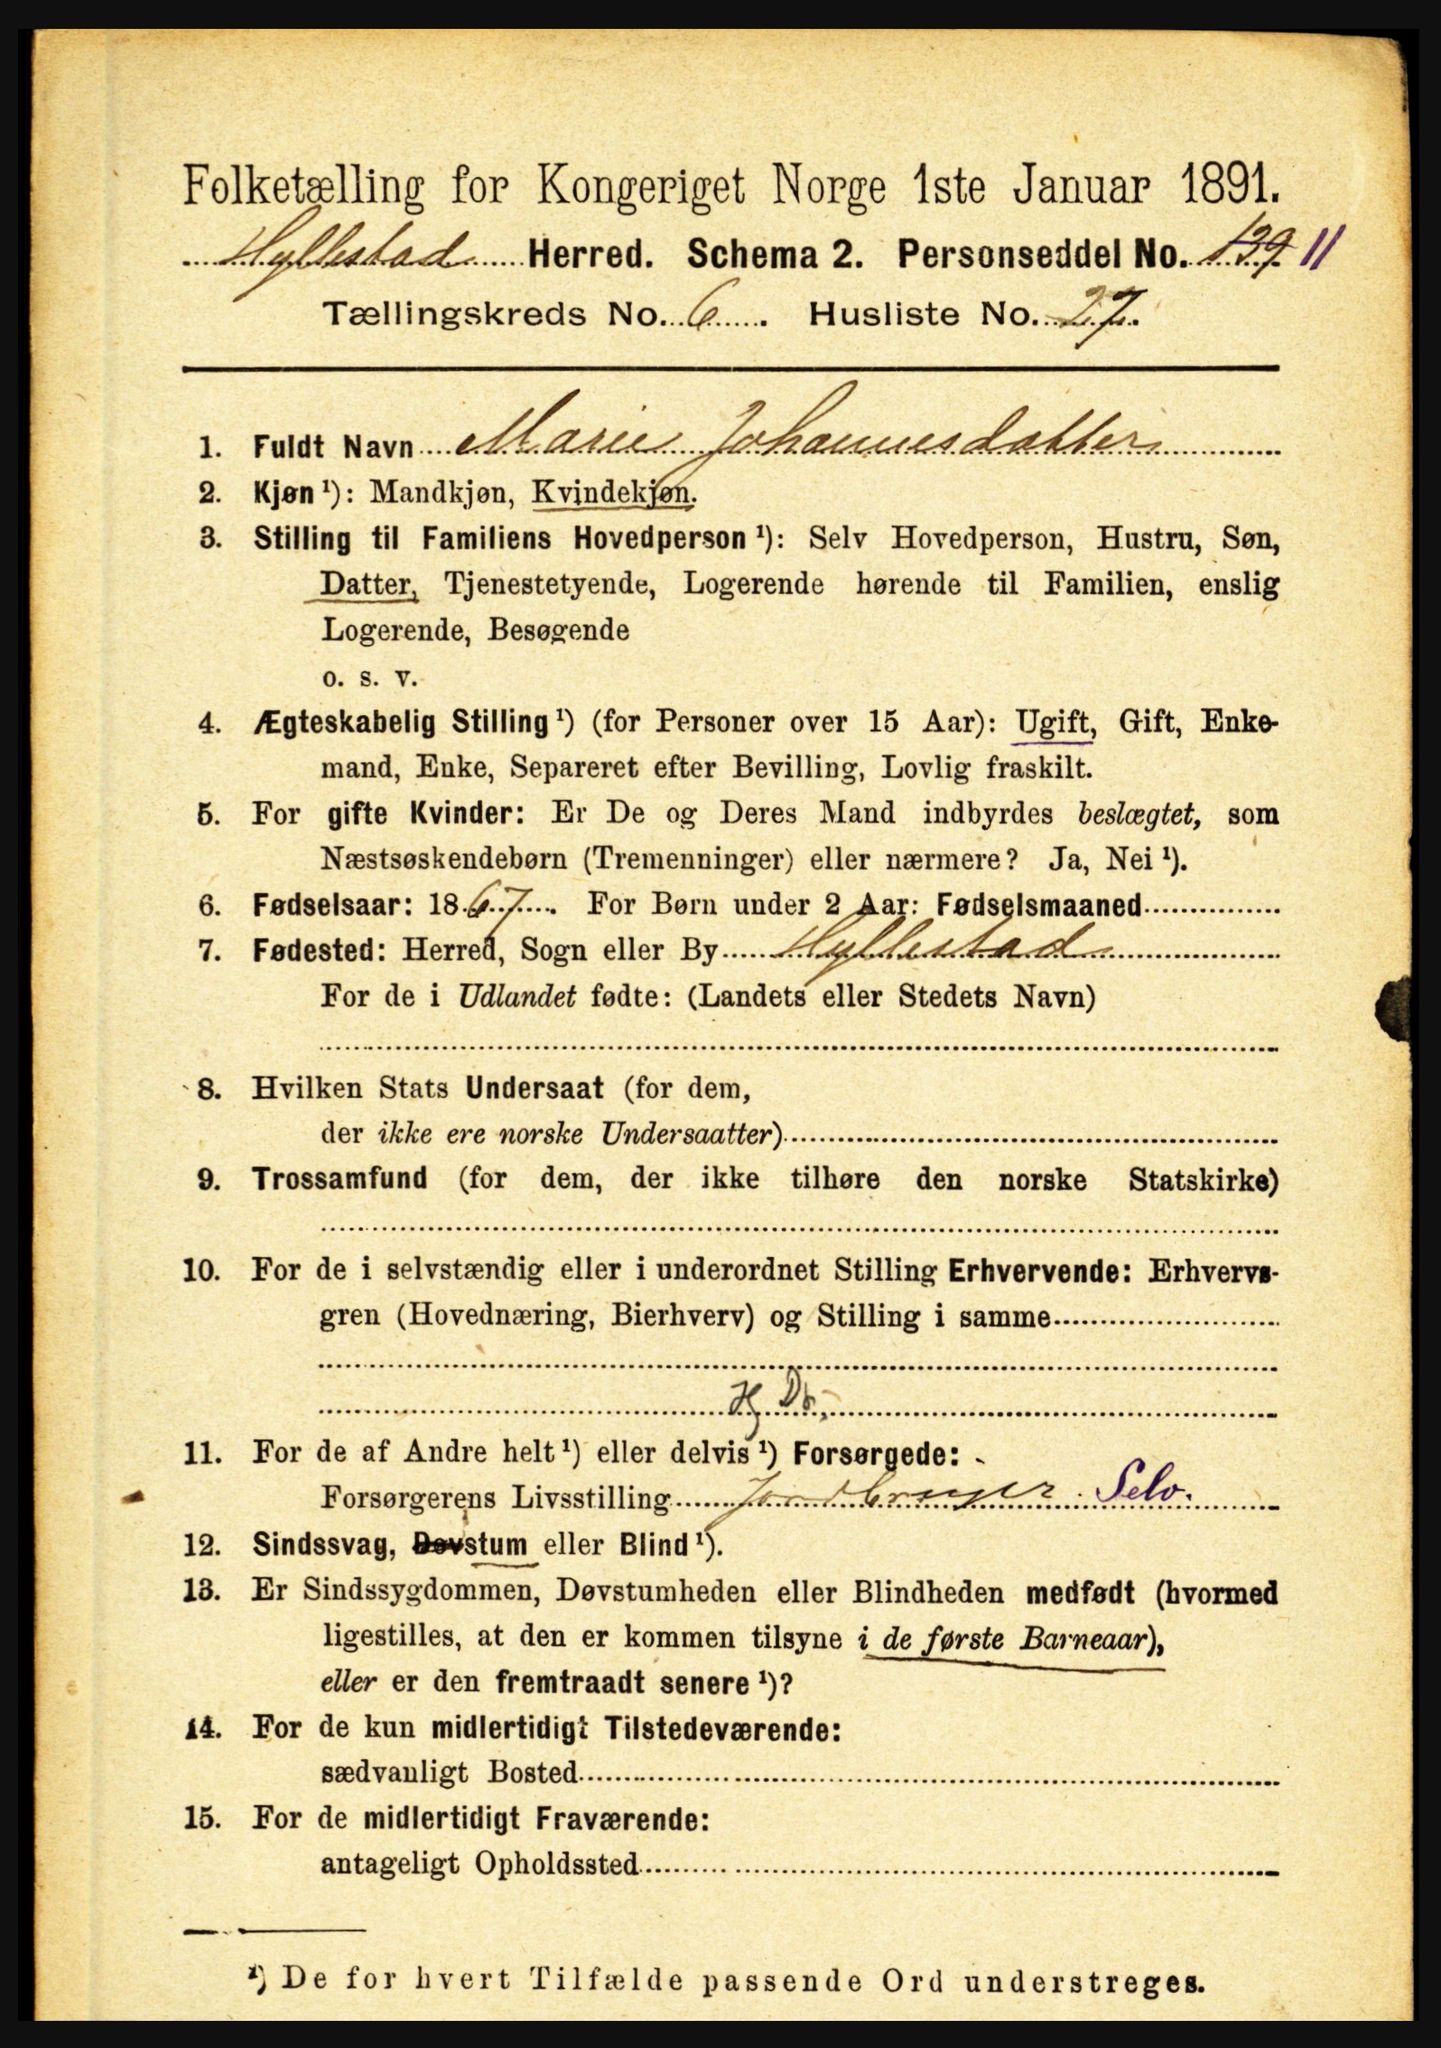 Folketælling for Kongeriget Norge 1ste Januar 1891.
Hyllestad Herred. Schema 2. Personseddel No. 139 11
Tællingskreds No. 6. Husliste No. 27.
1. Fuldt Navn Marie Johannesdatter
2. Kjøn ¹): Mandkjøn, Kvindekjøn.
3. Stilling til Familiens Hovedperson ¹): Selv Hovedperson, Hustru, Søn,
Datter, Tjenestetyende, Logerende hørende til Familien, enslig
Logerende, Besøgende
o. s. v.
4. Ægteskabelig Stilling ¹) (for Personer over 15 Aar): Ugift, Gift, Enke-
mand, Enke, Separeret efter Bevilling, Lovlig fraskilt.
5. For gifte Kvinder: Er De og Deres Mand indbyrdes beslægtet, som
Næstsøskendebørn (Tremenninger) eller nærmere? Ja, Nei ¹).
6. Fødselsaar: 1867. For Børn under 2 Aar: Fødselsmaaned
7. Fødested: Herred, Sogn eller By Hyllestad
For de i Udlandet fødte: (Landets eller Stedets Navn)
8. Hvilken Stats Undersaat (for dem,
der ikke ere norske Undersaatter)
9. Trossamfund (for dem, der ikke tilhøre den norske Statskirke)
10. For de i selvstændig eller i underordnet Stilling Erhvervende: Erhvervs-
gren (Hovednæring, Bierhverv) og Stilling i samme
Hj. Dr.
11. For de af Andre helt ¹) eller delvis ¹) Forsørgede:
Forsørgerens Livsstilling Jordbruger Selv.
12. Sindssvag, Døvstum eller Blind ¹).
13. Er Sindssygdommen, Døvstumheden eller Blindheden medfødt (hvormed
ligestilles, at den er kommen tilsyne i de første Barneaar),
eller er den fremtraadt senere ¹)?
14. For de kun midlertidigt Tilstedeværende:
sædvanligt Bosted
15. For de midlertidigt Fraværende:
antageligt Opholdssted
¹) De for hvert Tilfælde passende Ord understreges.